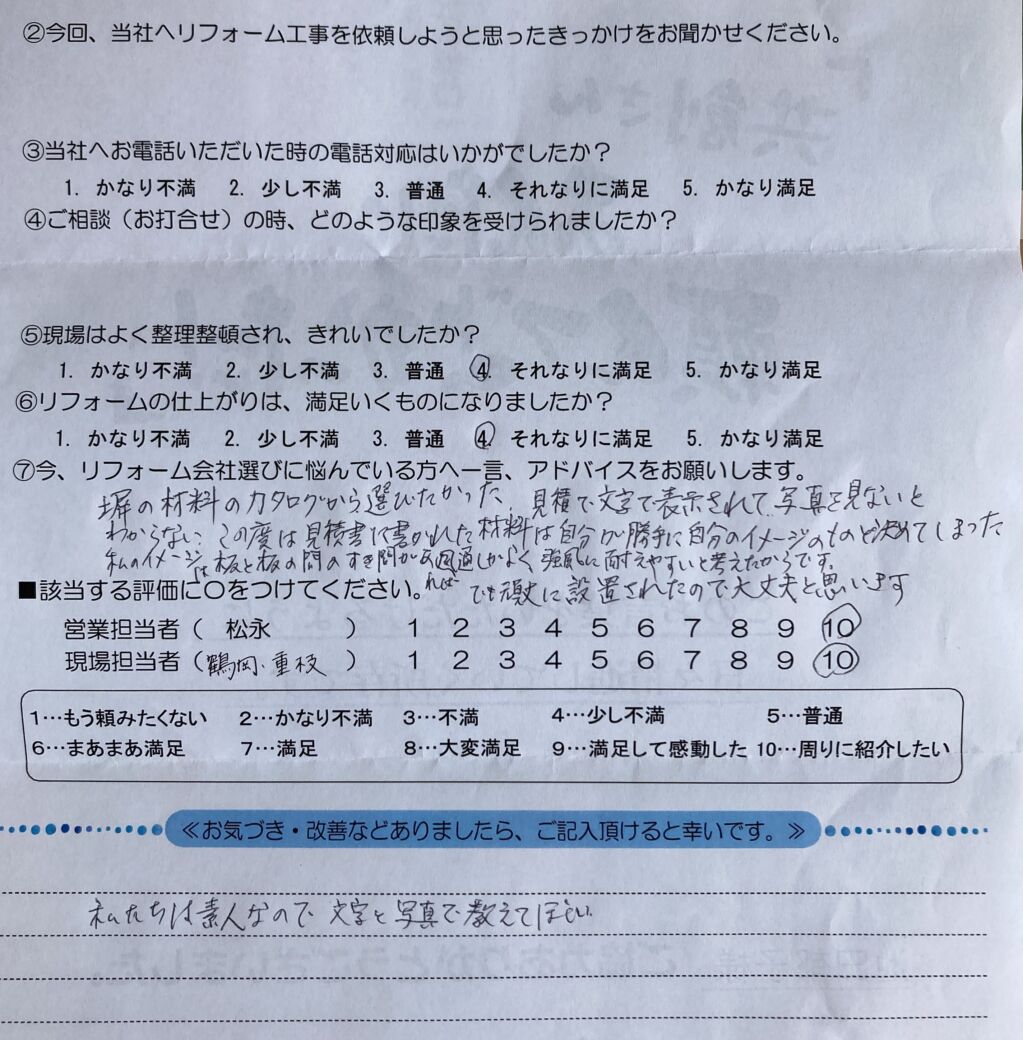 ②今回、当社へリフォーム工事を依頼しようと思ったきっかけをお聞かせください。
③当社へお電話いただいた時の電話対応はいかがでしたか？
1. かなり不満 2. 少し不満 3. 普通 4. それなりに満足 5. かなり満足
④ご相談（お打合せ）の時、どのような印象を受けられましたか？
⑤現場はよく整理整頓され、きれいでしたか？
1. かなり不満 2. 少し不満 3. 普通 4. それなりに満足 5. かなり満足
⑥リフォームの仕上がりは、満足いくものになりましたか？
1. かなり不満 2. 少し不満 3. 普通 4. それなりに満足 5. かなり満足
⑦今、リフォーム会社選びに悩んでいる方へ一言、アドバイスをお願いします。
塀の材料のカタログから選びたかった、見積で文字で表示されて、写真を見ないと
わからない、この度は見積書に書かれた材料は自分が勝手に自分のイメージのものと決めてしまった
私のイメージは板と板の間のすき間があれば風通しがよく強風に耐えやすいと考えたからです。
でも頑丈に設置されたので大丈夫と思います
■該当する評価に〇をつけてください。
営業担当者（ 松永 ） 1 2 3 4 5 6 7 8 9 10
現場担当者（鶴岡・重枝 ） 1 2 3 4 5 6 7 8 9 10
1…もう頼みたくない 2…かなり不満 3…不満 4…少し不満 5…普通
6…まあまあ満足 7…満足 8…大変満足 9…満足して感動した 10…周りに紹介したい
≪お気づき・改善などありましたら、ご記入頂けると幸いです。≫
私たちは素人なので文字と写真で教えてほしい